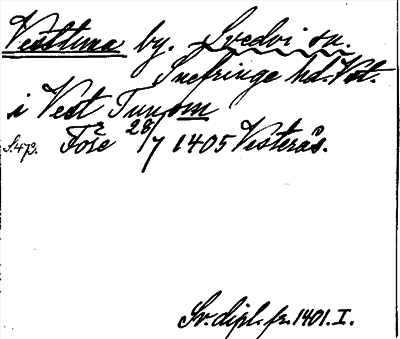 Vesttuna by. Svedvi sn.
Snefringe hd. Vstm.
i Vest Tunom
S. 473. Före 28/7 1405 Vesterås.
Sv. dipl. fr. 1401. I.